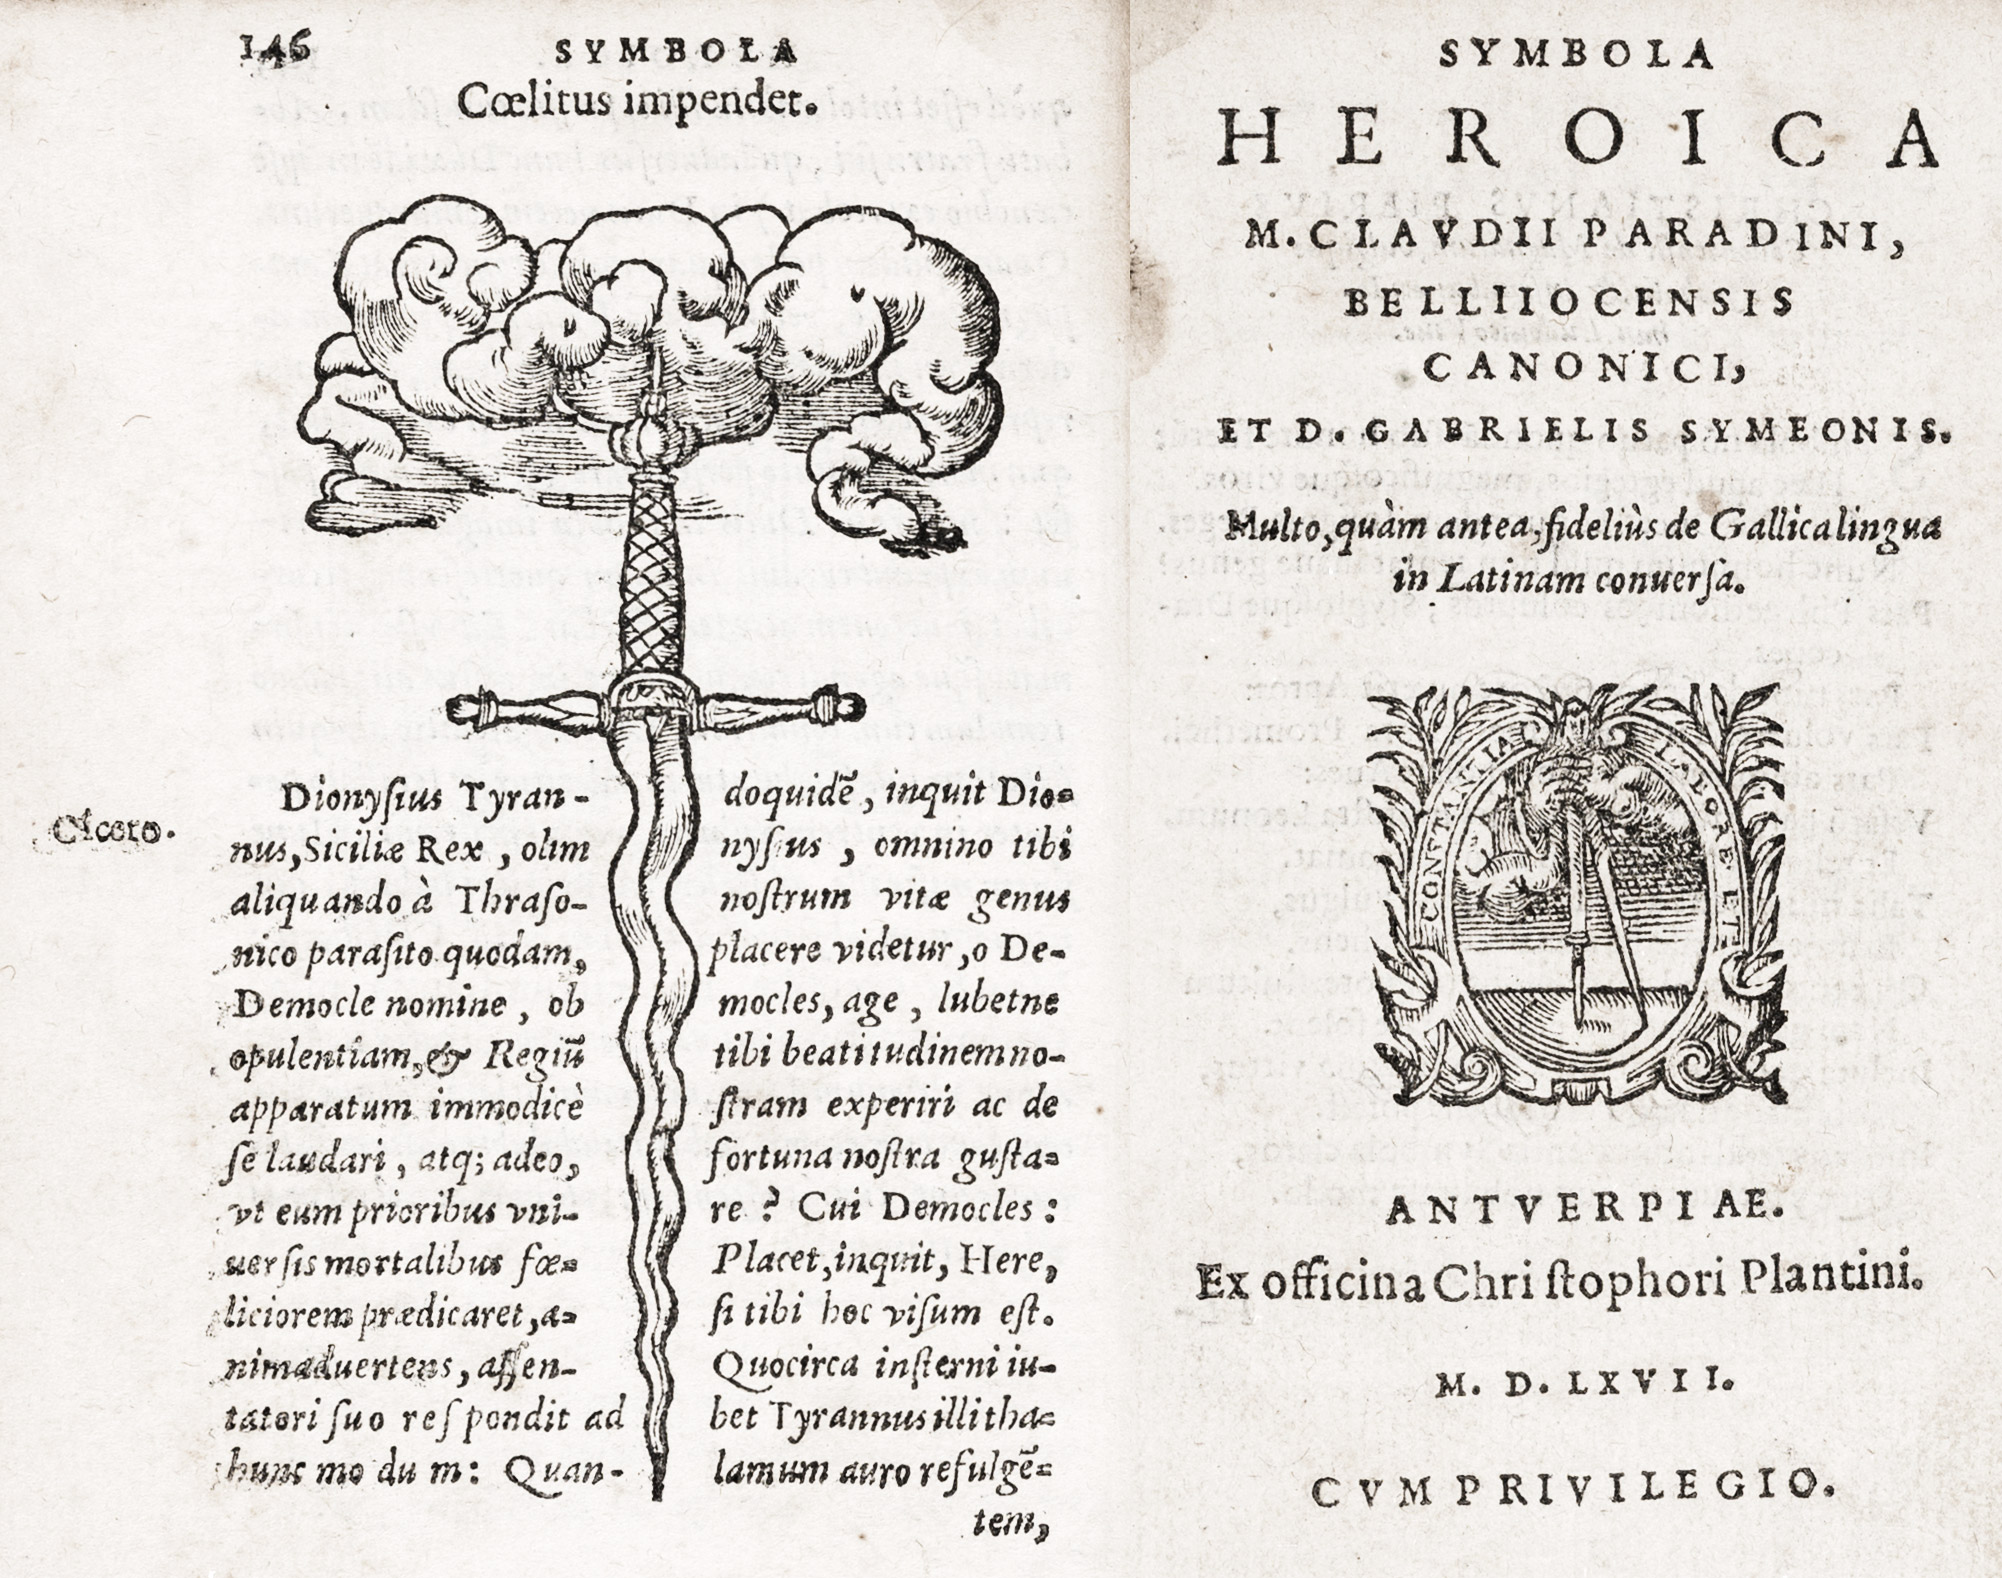 146
SYMBOLA
Cœlitus impendet.
Cicero.
Dionyſius Tyran-
nus, Siciliæ Rex, olim
aliquando à Thraſo-
nico paraſito quodam,
Democle nomine, ob
opulentiam, & Regiũ
apparatum immodicè
ſe laudari, atq; adeo,
vt eum prioribus vni-
uerſis mortalibus fœ-
liciorem prædicaret, a-
nimaduertens, aſſen-
tatori ſuo reſpondit ad
hunc modum: Quan-
doquidẽ, inquit Dio-
nyſius, omnino tibi
noſtrum vitæ genus
placere videtur, o De-
mocles, age, lubetne
tibi beatitudinem no-
ſtram experiri ac de
fortuna noſtra guſta-
re? Cui Democles:
Placet, inquit, Here,
ſi tibi hoc viſum eſt.
Quocirca inſterni iu-
bet Tyrannus illi tha-
lamum auro refulgẽ-
tem,
SYMBOLA
HEROICA
M. CLAVDII PARADINI,
BELLIIOCENSIS
CANONICI,
ET D. GABRIELIS SYMEONIS.
Multo, quàm antea, fideliùs de Gallica lingua
in Latinam conuerſa.
CONSTANTIA LABORE ET
ANTVERPIAE.
Ex officina Chriſtophori Plantini.
M. D. LXVII.
CVM PRIVILEGIO.